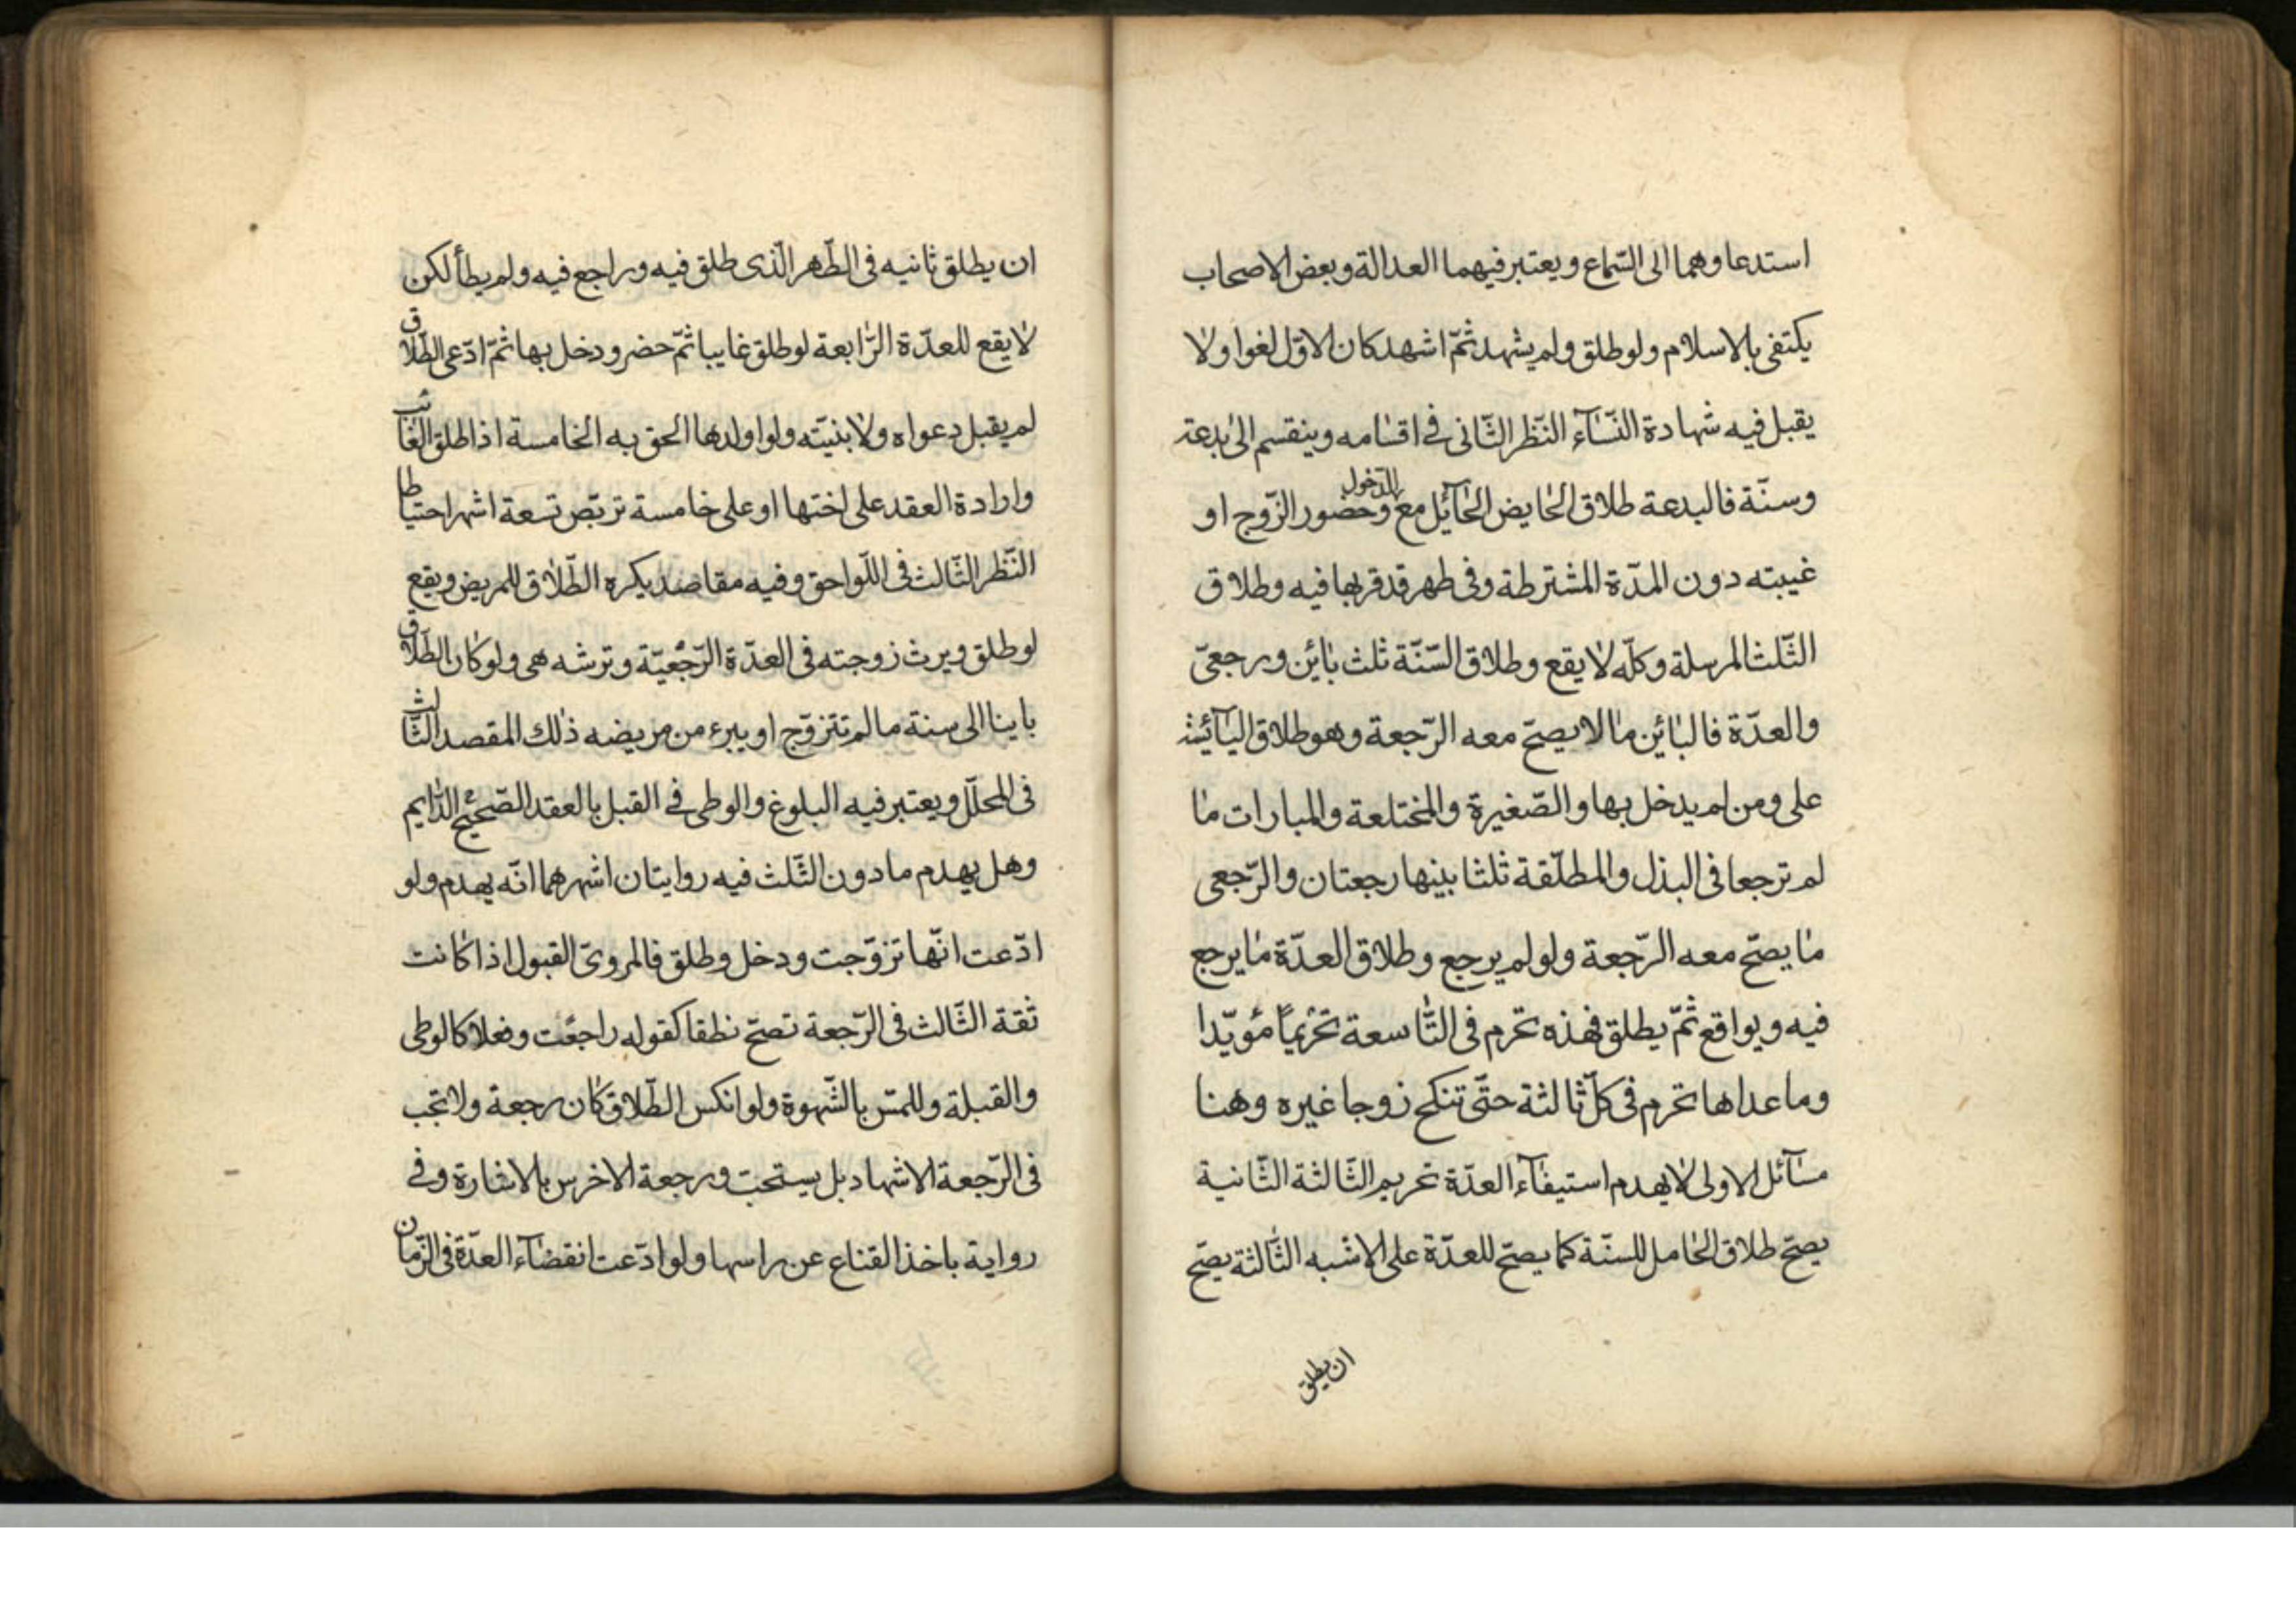 استدعاوهما الى السّماع ويعتبر فيهما العدالة وبعض الاصحاب
يكتفى بالاسلام ولو طلق ولم يشهد ثمّ اشهد كان الاوّل لغوا ولا
يقبل فيه شهادة النّسآء النّظر الثّانى فى اقسامه وينقسم الى بدعة
وسنّة فالبدعة طلاق الحايض الحآئل مع الدّخول وحضور الزّوج او
غيبته دون المدّة المشترطة وفى طهر قد قربها فيه وطلاق
الثّلث المرسلة وكلّه لا يقع وطلاق السّنّة ثلث بائن ورجعىّ
والعدّة فالبائن مالا يصحّ معه الرّجعة وهو طلاق اليآئسة
على ومن لم يدخل بها والصّغيرة والمختلعة والمبارات ما
لم ترجعا فى البذل والمطلّقة ثلثا بينها رجعتان والرّجعى
ما يصحّ معه الرّجعة ولو لم يرجع وطلاق العدّة ما يرجع
فيه ويواقع ثمّ يطلق فهذه تحرم فى التّاسعة تحريماً مؤيّدا
وما عداها تحرم فى كلّ ثالثة حتّى تنكح زوجا غيره وهنا
مسآئل الاولى لا يهدم استيفآء العدّة تحريم الثّالثة الثّانية
يصحّ طلاق الحامل للسنّة كما يصحّ للعدّة على الاشبه الثّالثة يصحّ
ان يطلق
ان يطلق ثانيه فى الطّهر الّذى طلق فيه وراجع فيه ولم يطأ لكن
لا يقع للعدّة الرّابعة لو طلق غايبا ثمّ حضر ودخل بها ثمّ ادّعى الطّلاق
لم يقبل دعواه ولا بنيّته ولو اولدها الحق به الخامسة اذا طلق الغائب
وارادة العقد على اختها او على خامسة تربّص تسعة اشهر احتياطا
النّظر الثّالث فى اللّواحق وفيه مقاصد يكره الطّلاق للمريض ويقع
لو طلق ويرث زوجته فى العدّة الرّجعيّة وترثه هى ولو كان الطّلاق
باينا الى سنة ما لم تتزوّج او يبرء من مريضه ذلك المقصد الثّالث
فى المحلّل ويعتبر فيه البلوغ والوطى فى القبل بالعقد الصّحيح الدّايم
وهل يهدم ما دون الثّلث فيه روايتان اشهرهما انّه يهدم ولو
ادّعت انّها تزوّجت ودخل وطلق فالمروىّ القبول اذا كانت
ثقة الثّالث فى الرّجعة تصحّ نطقا كقوله راجعت وفعلا كالوطى
والقبلة وللمسّ بالشّهوة ولو انكس الطّلاق كان رجعة ولا تجب
فى الرّجعة الاشهاد بل يستحبّ ورجعة الاخرس بالاشارة وفى
رواية باخذ القناع عن راسها ولو ادّعت انقضآء العدّة فى الزّمان